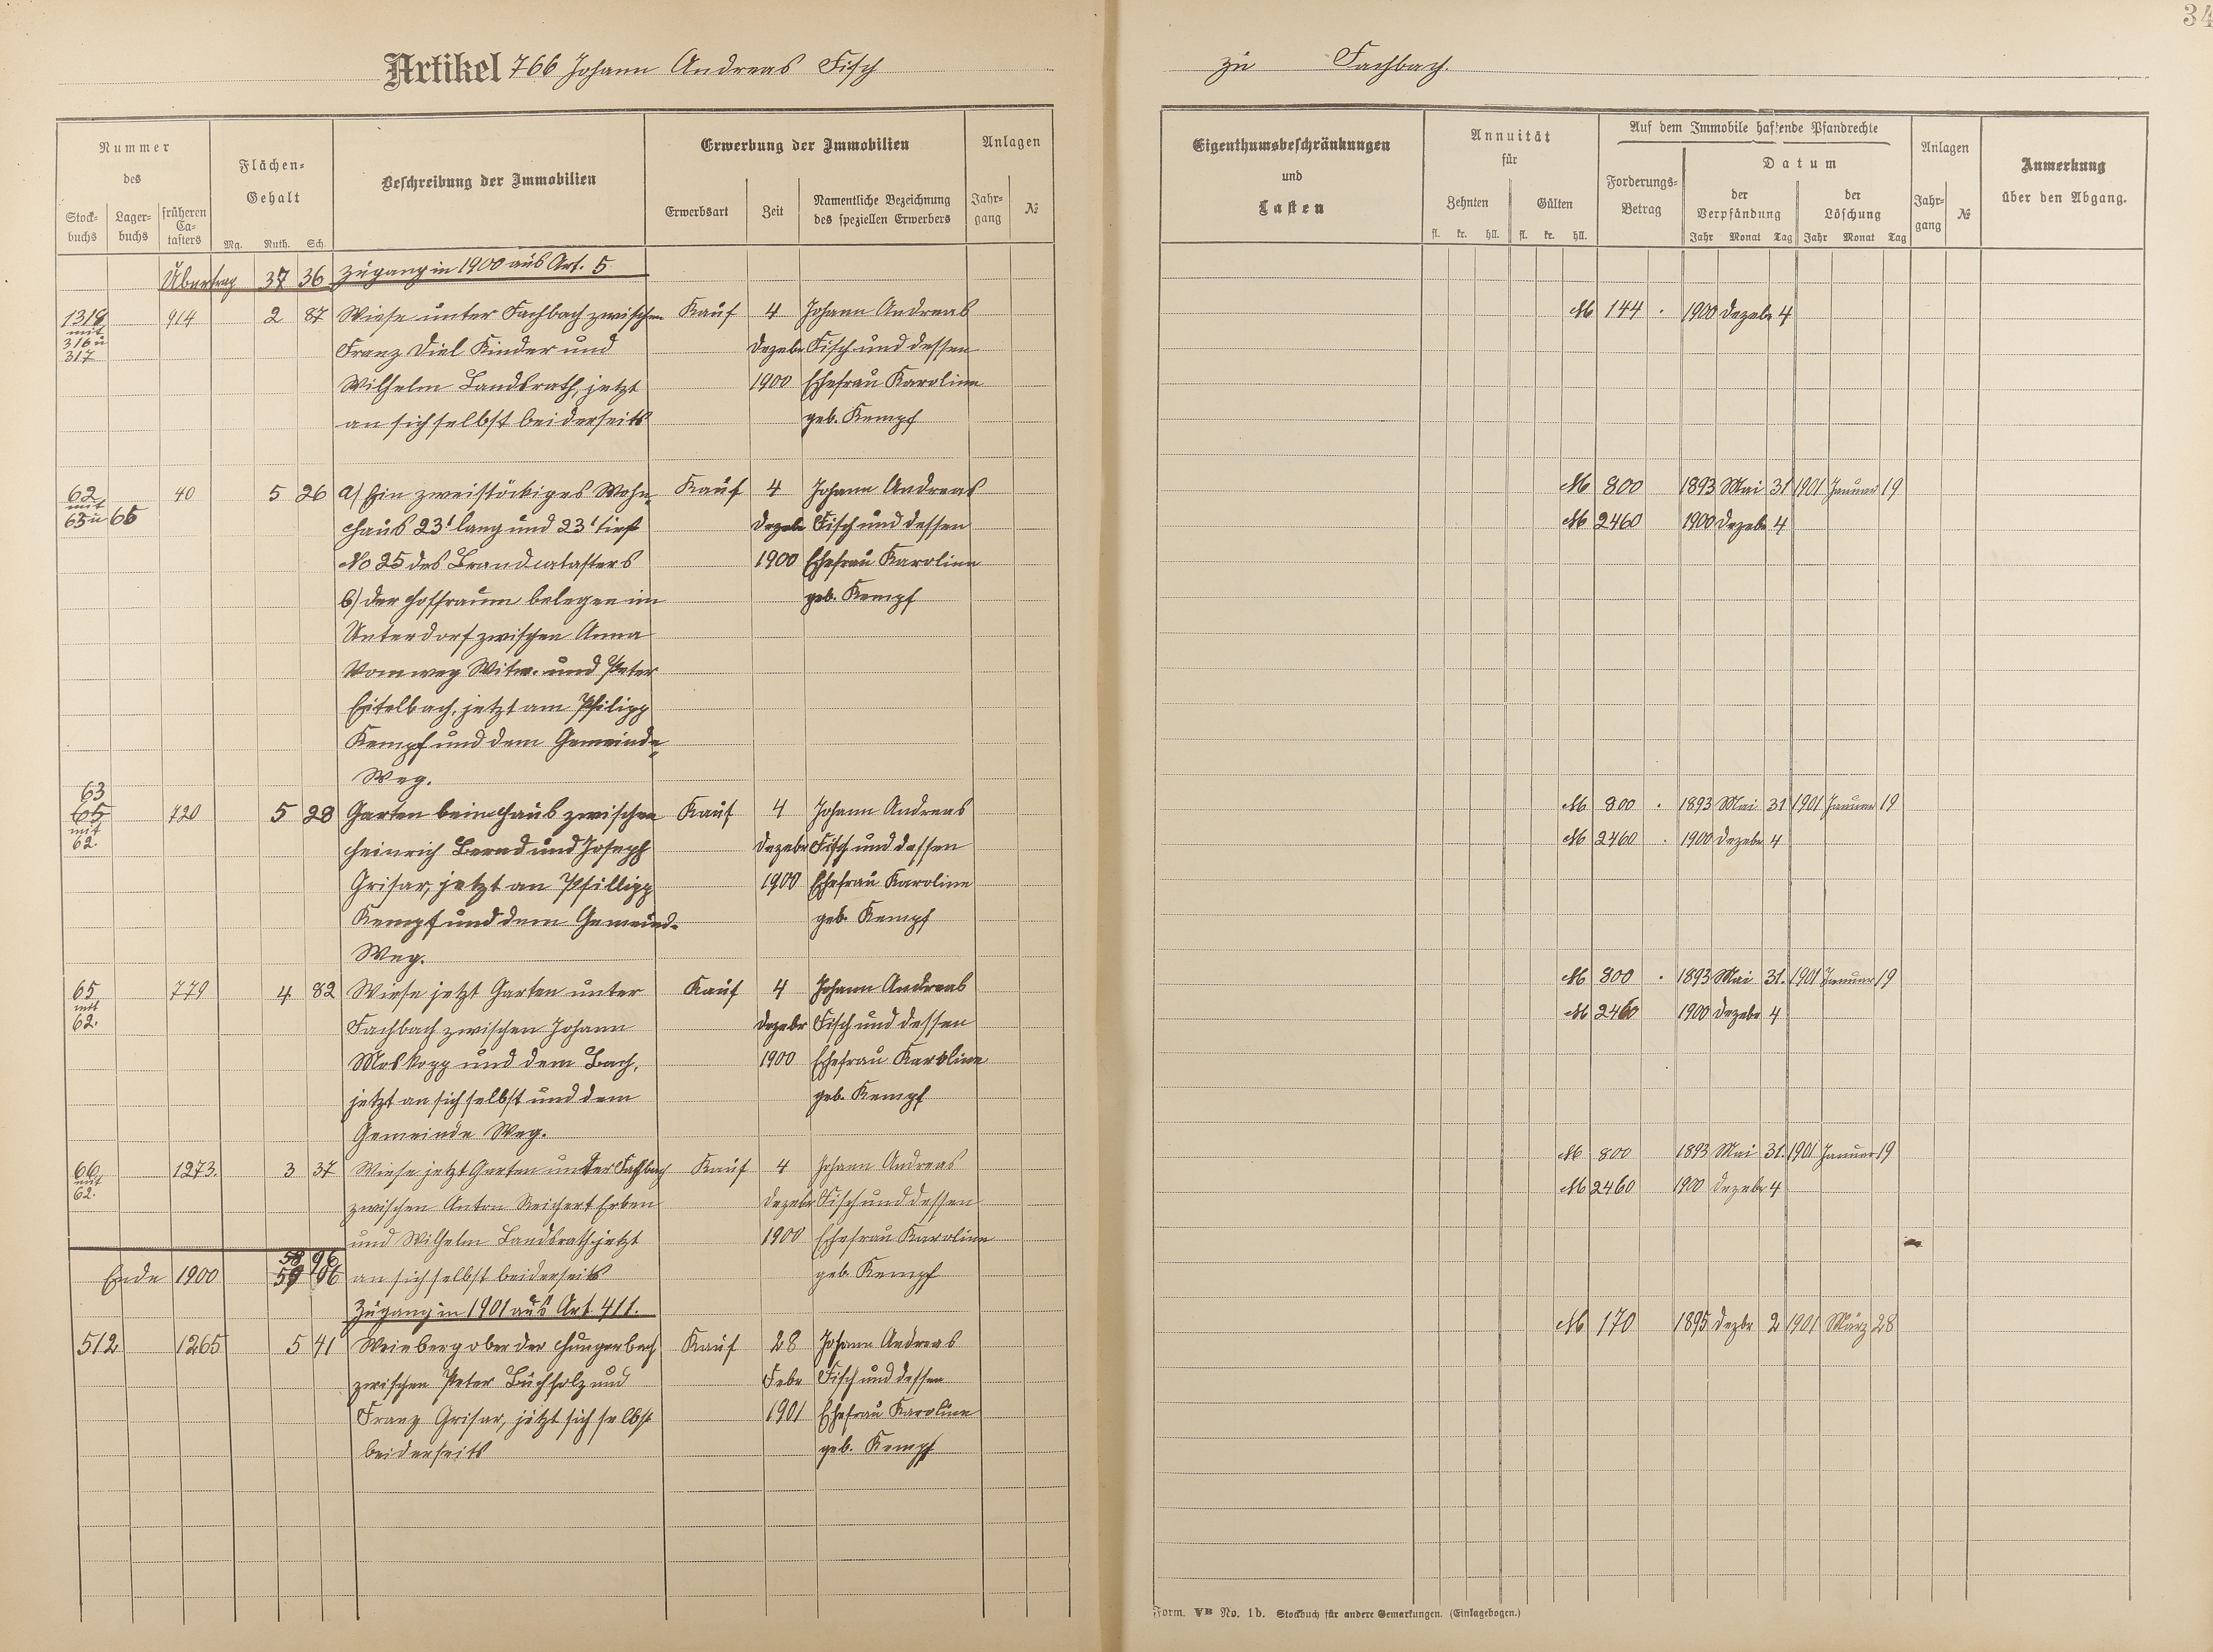 34
Artikel 766 Johann Andreas Fisch
zu Fachbach.
Nummer des
Stock-buchs
Lager-buchs
früheren Ca-tasters
Flächen-Gehalt
Mg. Ruth. Sch.
Beschreibung der Immobilien
Erwerbung der Immobilien
Erwerbsart
Zeit
Namentliche Bezeichnung des speziellen Erwerbers
Anlagen
Jahr-gang
№
Eigenthumsbeschränkungen und Lasten
Annuität für
Zehnten
Gülten
fl. kr. hll. fl. kr. hll.
Auf dem Immobile haftende Pfandrechte
Forderungs-Betrag
Datum
der Verpfändung
der Löschung
Jahr Monat Tag Jahr Monat Tag
Anlagen
Jahr-gang
№
Anmerkung über den Abgang.
Übertrag 37 36 Zugang in 1900 aus Art. 5
1318 914 2 87 Wiese unter Fachbach zwischen Kauf 4 Johann Andreas M 144 . 1900 Dezebr 4
mit
316 u
317
Franz Diel Kinder und Dezebr Fisch und dessen
Wilhelm Landsrath, jetzt 1900 Ehefrau Karoline
an sich selbst beiderseits geb. Kempf
62 40 5 26 a) Ein zweistöckiges Wohn- Kauf 4 Johann Andreas M 800 1893 Mai 31 1901 Januar 19
mit
63 u 65 haus 23' lang und 23' tief Dezebr Fisch und dessen M 2460 1900 Dezebr 4
No 25 des Brandcatasters 1900 Ehefrau Karoline
b) der Hofraum belegen im geb. Kempf
Unterdorf zwischen Anna
Vomweg Witw. und Peter
Eitelbach, jetzt am Philipp
Kempf und dem Gemeinde-
Weg.
63
65 720 5 28 Garten beim Haus zwischen Kauf 4 Johann Andreas M 800 . 1893 Mai 31 1901 Januar 19
mit
62. Heinrich Bernd und Joseph Dezebr Fisch und dessen M 2460 . 1900 Dezebr 4
Grisar, jetzt an Phillipp 1900 Ehefrau Karoline
Kempf und dem Gemeind- geb. Kempf
Weg.
65 779 4 82 Wiese jetzt Garten unter Kauf 4 Johann Andreas M 800 . 1893 Mai 31. 1901 Januar 19
mit
62. Fachbach zwischen Johann Dezebr Fisch und dessen M 2460 1900 Dezebr 4
Moskopp und dem Bach, 1900 Ehefrau Karoline
jetzt an sich selbst und dem geb. Kempf
Gemeinde Weg.
66 1273. 3 37 Wiese jetzt Garten unter Fachbach Kauf 4 Johann Andreas M 800 1893 Mai 31. 1901 Januar 19
mit
62. zwischen Anton Reichert Erben Dezebr Fisch und dessen M 2460 1900 Dezebr 4
und Wilhelm Landsrath jetzt 1900 Ehefrau Karoline
58 96
Ende 1900 59 06 an sich selbst beiderseits geb. Kempf
Zugang in 1901 aus Art. 411.
512 1265 5 41 Weinberg ober der Hungerbach Kauf 28 Johann Andreas M 170 1895 Dezbr 2 1901 März 28
zwischen Peter Buchholz und Febr Fisch und dessen
Franz Grisar, jetzt sich selbst 1901 Ehefrau Karoline
beiderseits geb. Kempf
Form. VB No. 1b. Stockbuch für andere Gemarkungen. (Einlagebogen.)